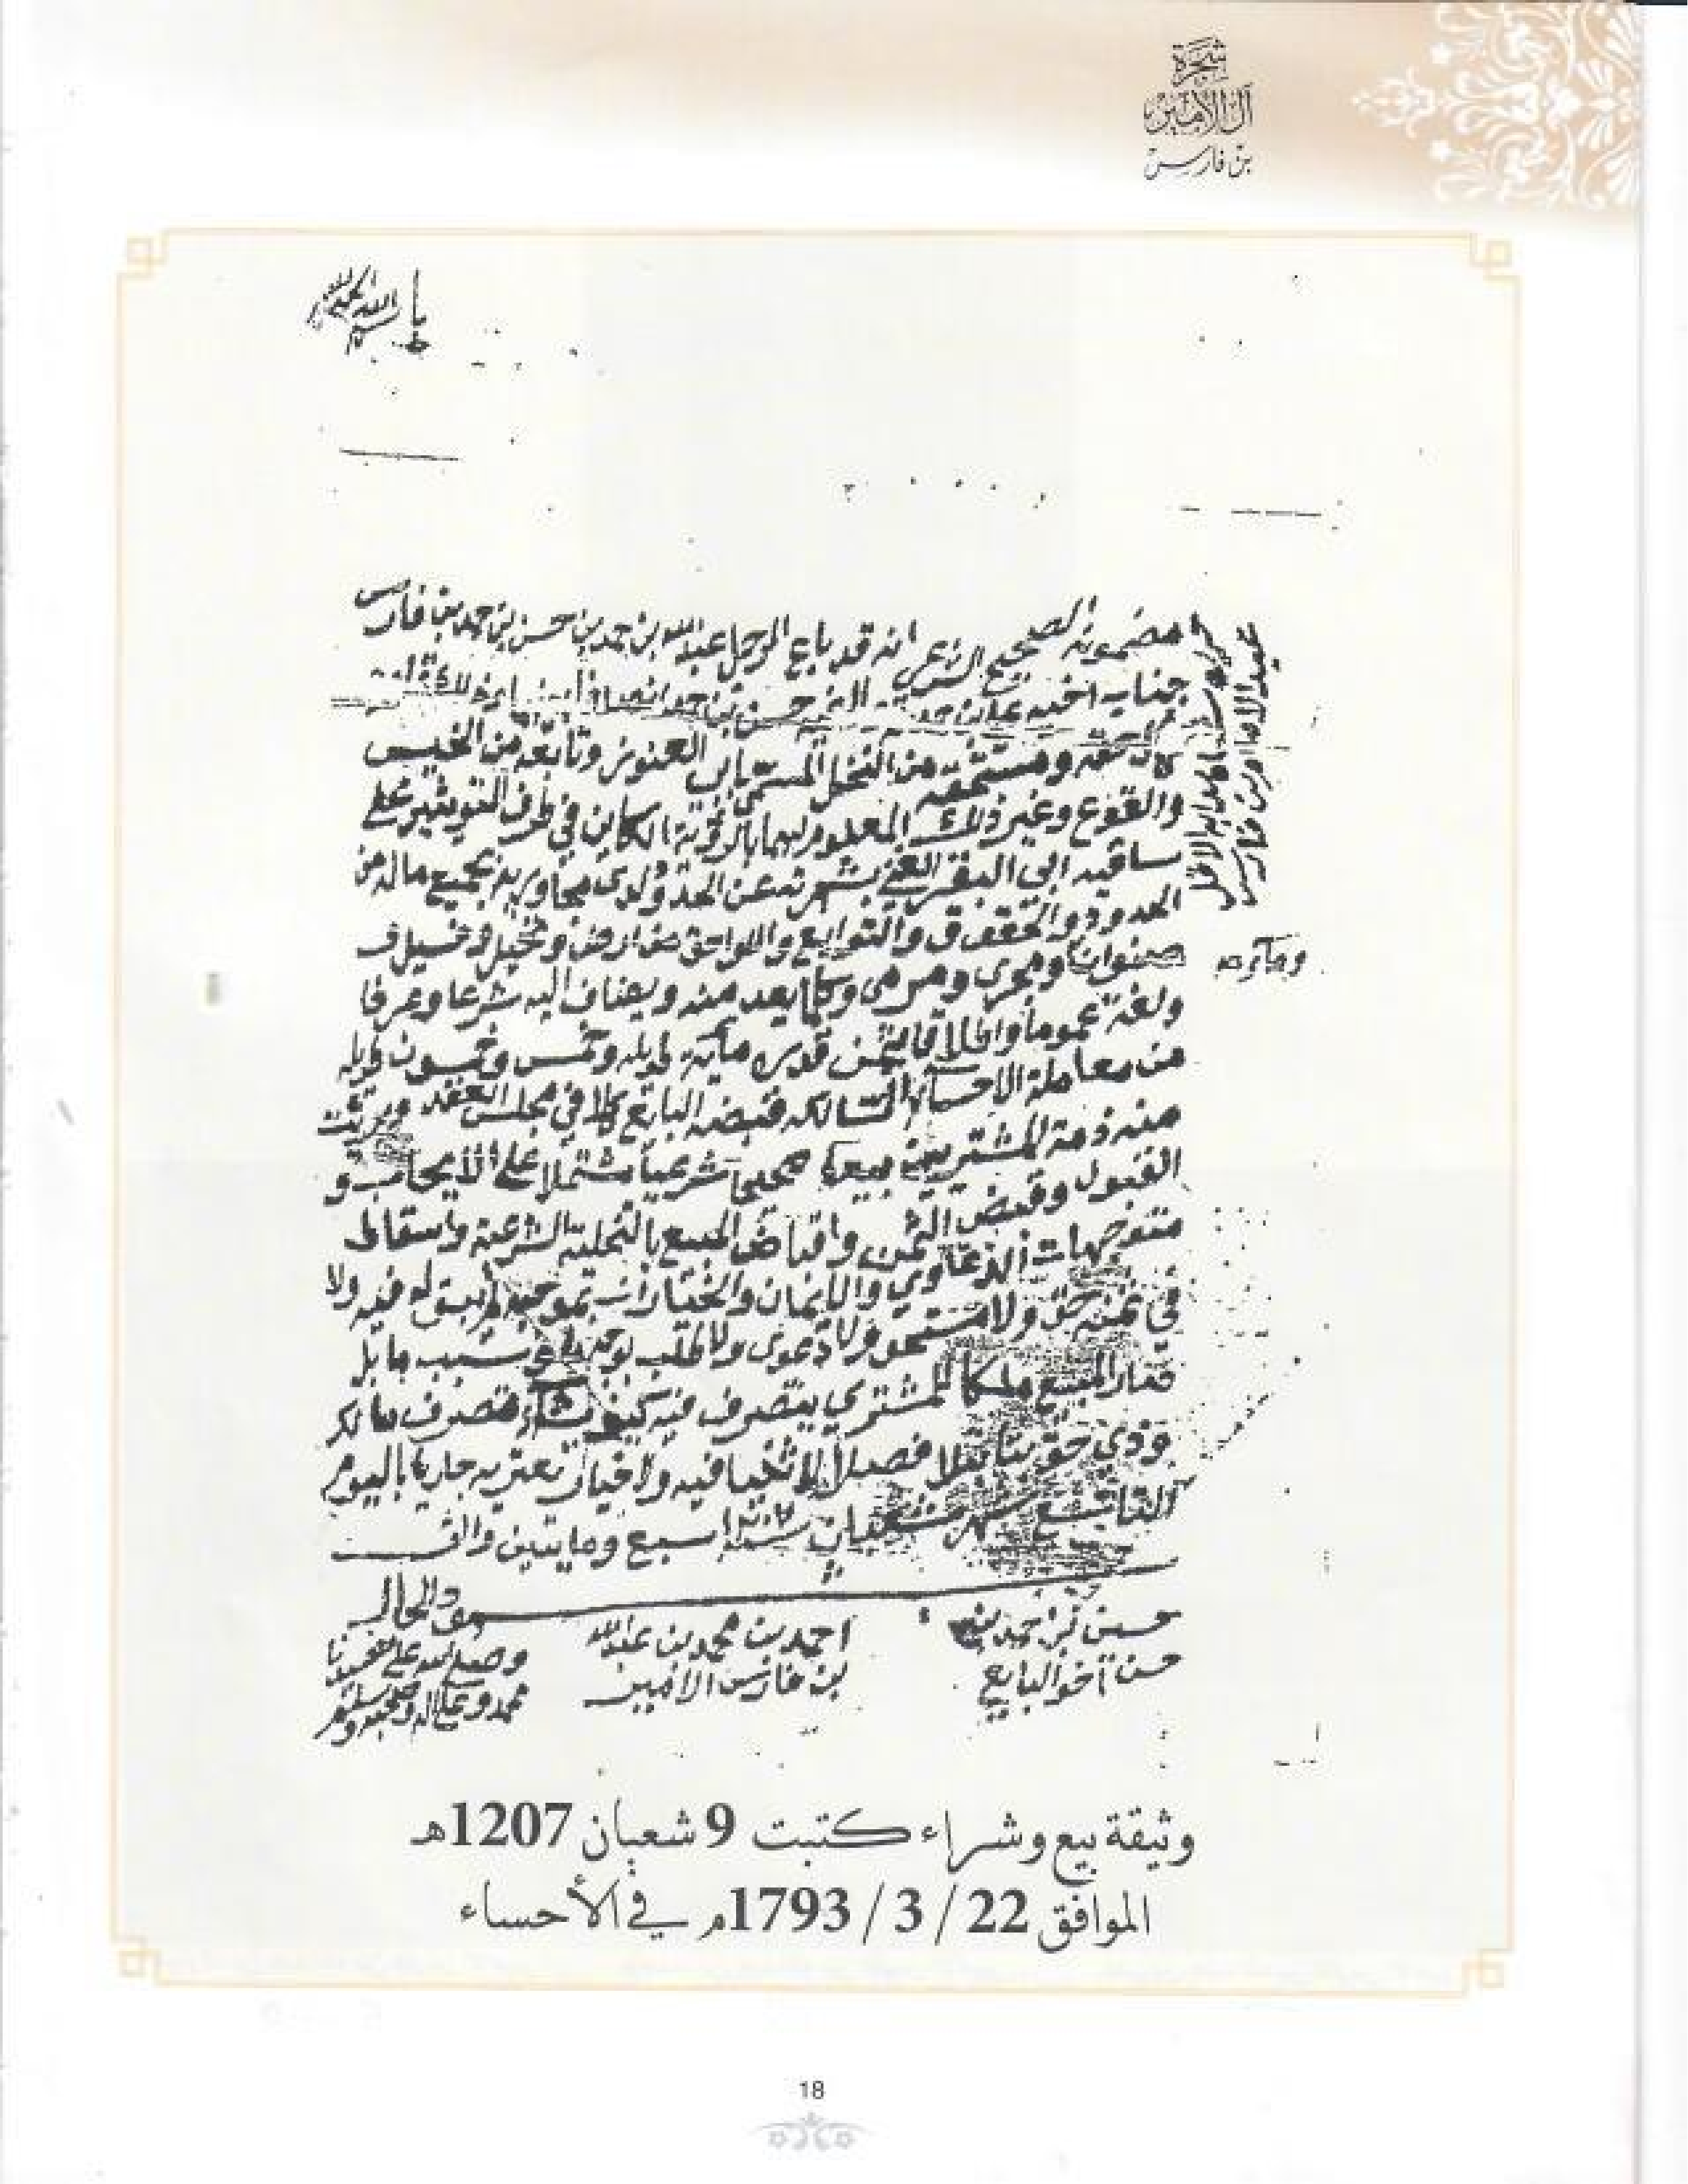 شجرة
آل الأمير
بن فارس
مضمونه الصحيح الشرعي انه قد باع الرجل عبدالله بن حمد بن حسن بن حمد بن فارس
جناب اخيه
ومستحقه من النخل المسمى العنوز وتابعه من الخيس
والقوع وغير ذلك المعلوم لهما بالرؤية الكاين في طرف التويثير على
ساقيه ابي البقر الغني بشهرته عن الحد ولدى مجاوريه بجميع ماله من
الحدود والحقوق والتوابع واللواحق من ارض ونخيل وفسيل و
صنوان ومجرى ومرمى وكلما يعد منه ويضاف اليه شرعا وعرفا
وماء وهـ
ولغة عموما واطلاقا بثمن قدره مايه طويله وخمس وخمسون طويله
من معاملة الاحساء السالكه قبضه البايع كلا في مجلس العقد وبرئت
منه ذمة المشتري بيعا صحيحا شرعيا مشتملا على الايجاب و
القبول وقبض الثمن واقباض المبيع بالتخلية الشرعية واسقاط
متوجهات الدعاوي والايمان والخيارات فلم يبق له فيه ولا
في ثمنه حق ولا مستحق ولا دعوى ولا طلب بوجه ما وسبب ما بل
صار المبيع ملكا للمشتري يتصرف فيه كيف شاء تصرف مالك
وذي حق بتا بتلا فصلا لا ثنيا فيه ولا خيار يعتريه جاريا باليوم
التاسع شهر شعبان سنة سبع ومايتين والف
حسين بن حمد بن
حسن اخو البايع
احمد بن محمد بن عبدالله
بن فارس الامير
وصلى الله على سيدنا
محمد وعلى اله وصحبه وسلم
وثيقة بيع وشراء كتبت 9 شعبان 1207هـ
الموافق 22 / 3 / 1793م في الأحساء
18